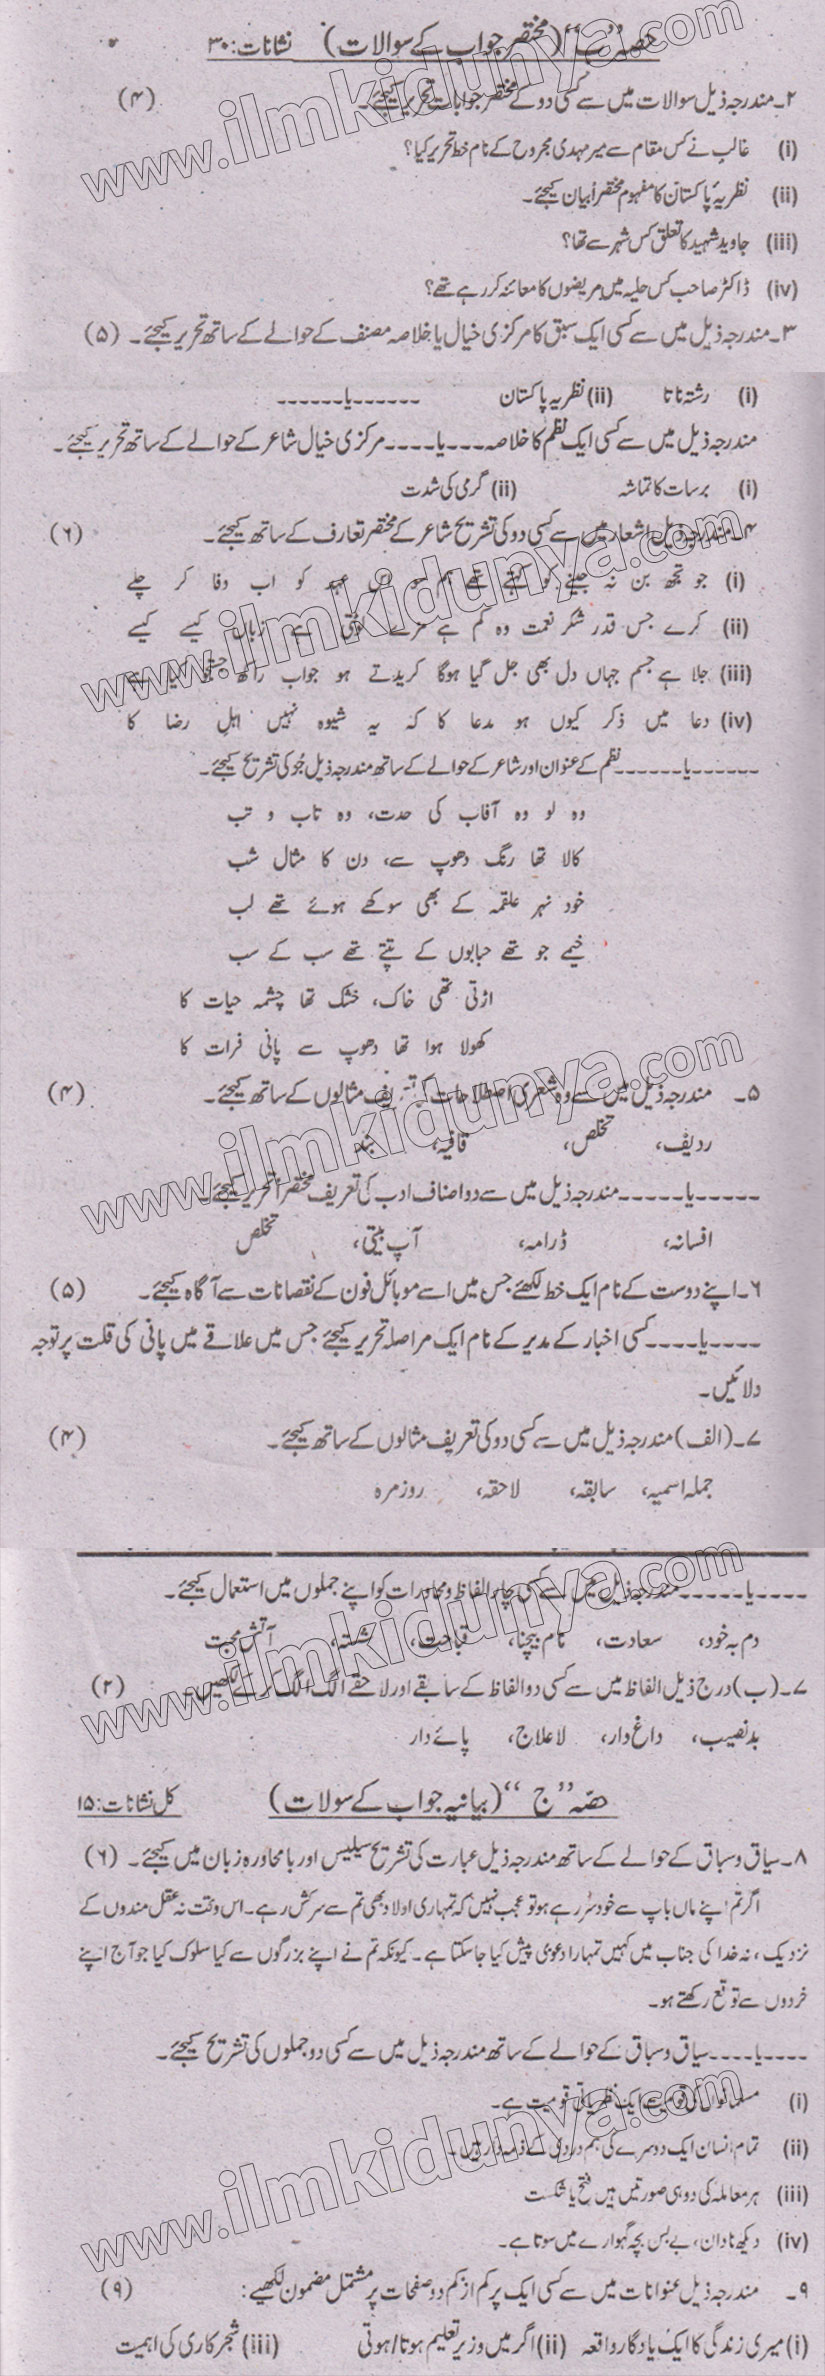 حصہ ”ب“ (مختصر جواب کے سوالات) نشانات: ۳۰
۲۔ مندرجہ ذیل سوالات میں سے کسی دو کے مختصر جوابات تحریر کیجئے۔ (۴)
(i) غالب نے کس مقام سے میر مہدی مجروح کے نام خط تحریر کیا؟
(ii) نظریۂ پاکستان کا مفہوم مختصراً بیان کیجئے۔
(iii) جاوید شہید کا تعلق کس شہر سے تھا؟
(iv) ڈاکٹر صاحب کس حلیہ میں مریضوں کا معائنہ کر رہے تھے؟
۳۔ مندرجہ ذیل میں سے کسی ایک سبق کا مرکزی خیال یا خلاصہ مصنف کے حوالے کے ساتھ تحریر کیجئے۔ (۵)
(i) رشتہ ناتا (ii) نظریہ پاکستان ------یا------
مندرجہ ذیل میں سے کسی ایک نظم کا خلاصہ ----یا---- مرکزی خیال شاعر کے حوالے کے ساتھ تحریر کیجئے۔
(i) برسات کا تماشہ (ii) گرمی کی شدت
۴۔ مندرجہ ذیل اشعار میں سے کسی دو کی تشریح شاعر کے مختصر تعارف کے ساتھ کیجئے۔ (۶)
(i) جو تجھ بن نہ جینے کو کہتے تھے ہم سو اس عہد کو اب وفا کر چلے
(ii) کرے جس قدر شکر نعمت وہ کم ہے مزے لوٹتی ہے زباں کیسے کیسے
(iii) جلا ہے جسم جہاں دل بھی جل گیا ہوگا کریدتے ہو جواب راکھ جستجو کیا ہے
(iv) دعا میں ذکر کیوں ہو مدعا کا کہ یہ شیوہ نہیں اہل رضا کا
------یا------ نظم کے عنوان اور شاعر کے حوالے کے ساتھ مندرجہ ذیل جُو کی تشریح کیجئے۔
وہ لو وہ آفاب کی حدت، وہ تاب و تب
کالا تھا رنگ دھوپ سے، دن کا مثال شب
خود نہر علقمہ کے بھی سوکھے ہوئے تھے لب
خیمے جو تھے حبابوں کے تپتے تھے سب کے سب
اڑتی تھی خاک، خشک تھا چشمہ حیات کا
کھولا ہوا تھا دھوپ سے پانی فرات کا
۵۔ مندرجہ ذیل میں سے وہ شعری اصطلاحات کی تعریف مثالوں کے ساتھ کیجئے۔ (۴)
ردیف، تخلص، قافیہ، بند
-----یا----- مندرجہ ذیل میں سے دو اصناف ادب کی تعریف مختصراً تحریر کیجئے۔
افسانہ، ڈرامہ، آپ بیتی، تخلص
۶۔ اپنے دوست کے نام ایک خط لکھئے جس میں اسے موبائل فون کے نقصانات سے آگاہ کیجئے۔ (۵)
----یا---- کسی اخبار کے مدیر کے نام ایک مراصلہ تحریر کیجئے جس میں علاقے میں پانی کی قلت پر توجہ
دلائیں۔
۷۔ (الف) مندرجہ ذیل میں سے کسی دو کی تعریف مثالوں کے ساتھ کیجئے۔ (۴)
جملہ اسمیہ، سابقہ، لاحقہ، روزمرہ
-----یا----- مندرجہ ذیل میں سے کسی چار الفاظ و محاورات کو اپنے جملوں میں استعمال کیجئے۔
دم بہ خود، سعادت، نام بیچنا، قباحت، شستہ، آتش محبت
۷۔ (ب) درج ذیل الفاظ میں سے کسی دو الفاظ کے سابقے اور لاحقے الگ الگ کر کے لکھیں۔ (۲)
بد نصیب، داغ دار، لا علاج، پائے دار
حصّہ ”ج“ (بیانیہ جواب کے سولات) کل نشانات: ۱۵
۸۔ سیاق و سباق کے حوالے کے ساتھ مندرجہ ذیل عبارت کی تشریح سلیس اور با محاورہ زبان میں کیجئے۔ (۶)
اگر تم اپنے ماں باپ سے خود سَر رہے ہو تو عجب نہیں کہ تمہاری اولاد بھی تم سے سرکش رہے۔ اس وقت نہ عقل مندوں کے
نزدیک، نہ خدا کی جناب میں کہیں تمہارا دعویٰ پیش کیا جا سکتا ہے۔ کیونکہ تم نے اپنے بزرگوں سے کیا سلوک کیا جو آج اپنے
خردوں سے توقع رکھتے ہو۔
----یا---- سیاق و سباق کے حوالے کے ساتھ مندرجہ ذیل میں سے کسی دو جملوں کی تشریح کیجئے۔
(i) مسلمانوں کی قومیت ایک نظریاتی قومیت ہے۔
(ii) تمام انسان ایک دوسرے کی ہم دردی کے ذمہ دار ہیں۔
(iii) ہر معاملہ کی دو ہی صورتیں ہیں فتح یا شکست
(iv) دیکھ نادان، بے بس بچہ گہوارے میں سوتا ہے۔
۹۔ مندرجہ ذیل عنوانات میں سے کسی ایک پر کم از کم دو صفحات پر مشتمل مضمون لکھیے: (۹)
(i) میری زندگی کا ایک یادگار واقعہ (ii) اگر میں وزیر تعلیم ہوتا/ہوتی (iii) شجر کاری کی اہمیت
www.ilmkidunya.com
www.ilmkidunya.com
www.ilmkidunya.com
www.ilmkidunya.com
www.ilmkidunya.com